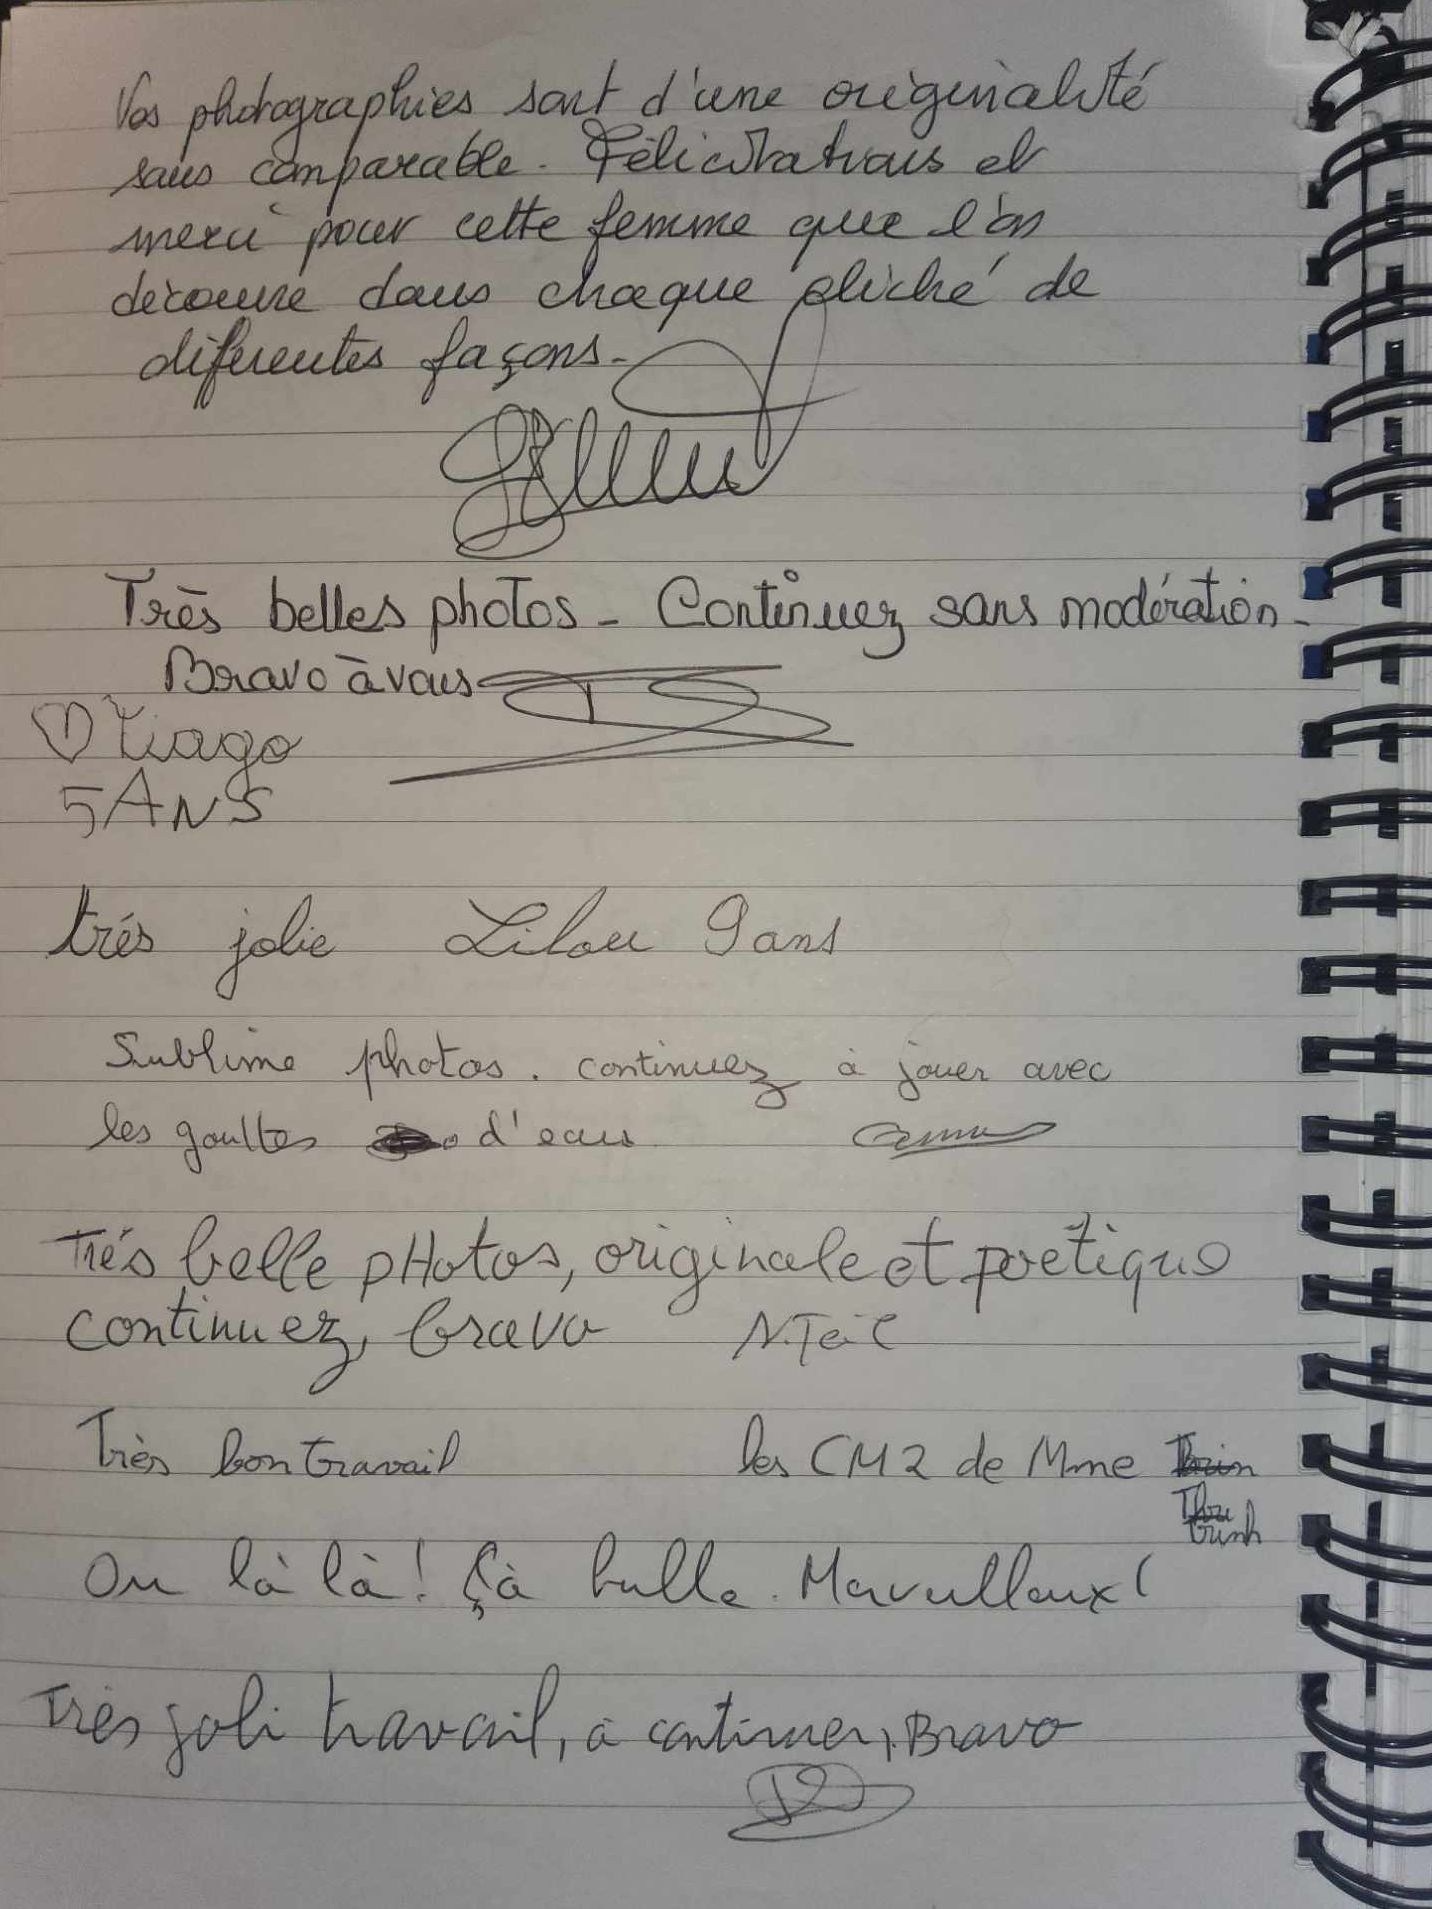 Vos photographies sont d'une originalité
sans comparable. Félicitations et
merci pour cette femme que l'on
découvre dans chaque cliché de
diferentes façons.
Très belles photos - Continuez sans modération -
Bravo à vous
Tiago
5 ANS
trés jolie Lilou 9 ans
Sublime photos. continuez à jouer avec
les gouttes d'eau
Trés belle pHotos, originale et poetique
continuez, bravo
Très bon travail les CM2 de Mme
trinh
Ou là là ! Çà bulle. Merveilleux !
Très joli travail, à continuer, Bravo